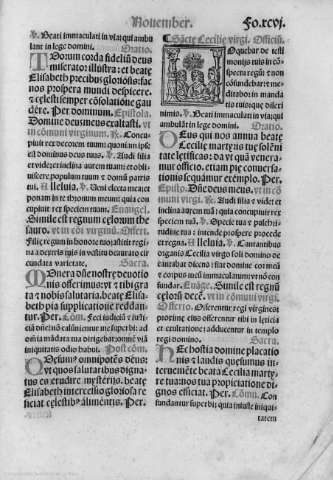 Nouember.
Fo.xcvj.
℣. Beati immaculati in via: qui ambu
lant in lege domini. Oratio.
TUorum corda fideliũ deus
miserator illustra: et beate
Elisabeth precibus gloriosis: fac
nos prospera mundi despicere:
⁊ celesti semper cõsolatione gau
dere. Per dominum. Epistola.
Domine deus meus exaltasti. vt
in cõmuni virginum. ℟. Concu-
piuit rex decorem tuum: quoniam ipse
est dominus deus tuus. ℣. Audi filia
et vide: et inclina aurem tuam: et obli
uiscere populum tuum: et domum patris
tui. Alleluia. ℣. Veni electa mea: et
ponam in te thronum meum: quia con
cupiuit rex speciem tuam. Euangel.
Simile est regnum celorum the
sauro. vt in cõi virginũ. Offert.
Filie regum in honore tuo: astitit regi
na a dextris tuis in vestitu deaurato cir
cundata varietate. Secreta.
MUnera dñe nostre deuotio
nis offerimus: que vt ⁊ tibi gra
ta
nobis salutaria: beata Elisa
beth pia supplicatione reddan
tur. Per. Cõm. Feci iudiciũ ⁊ iu
sticiã
omnem viã
iniquitatis odio habui. Post cõm.
QUesumus omnipotẽs deus: vt
quos salutaribus dignan
tus es erudire mysterijs: beate
Elisabeth intercessio gloriosa re
ficiat celestibus alimentis. Per.
¶ Sãcte Cecilie virgi. Officiũ.
LOquebar de testi
monijs tuis in cõ
spectu regũ: ⁊ non
confundebar: ⁊ me
ditabor in manda
tis tuis: que dilexi
nimis. ℣. Beati immaculati in via: qui
ambulãt in lege domini. Oratio.
DEus qui nos annua beate
Cecilie martyris tue solẽni
tate letificas: da vt quã venera
mur officio: etiam pie conuer-
sationis sequamur exemplo. Per.
Epistola. Dñe deus meus. vt in cõ
muni virgi. ℟. Audi filia ⁊ videt et
inclina aurem tuã: quia concupiuit rex
speciem tuã. ℣. Specie tua ⁊ pulchri-
tudine tua: intende prospere procede
et regna. Alleluia. ℣. Cantantibus
organis Cecilia virgo soli domino de
cantabat dicens: fiat domine cor meũ
et corpus meũ immaculatum: vt nõ con
fundar. Euãge. Simile est regnũ
celorũ decẽ. vt in cõmuni virgi.
Offertio. Offerentur regi virgines:
proxime eius offerentur tibi in leticia
et exultatione: adducentur in templo
regi domino. Secreta.
HEc hostia domine placatio
nis ⁊ laudis quesumus in-
terueniente beata Cecilia marty
re tua: nos tua propiciatione di
gnos efficiat. Per. Cõm. Con
fundantur superbi: quia iniuste iniqui
tatem